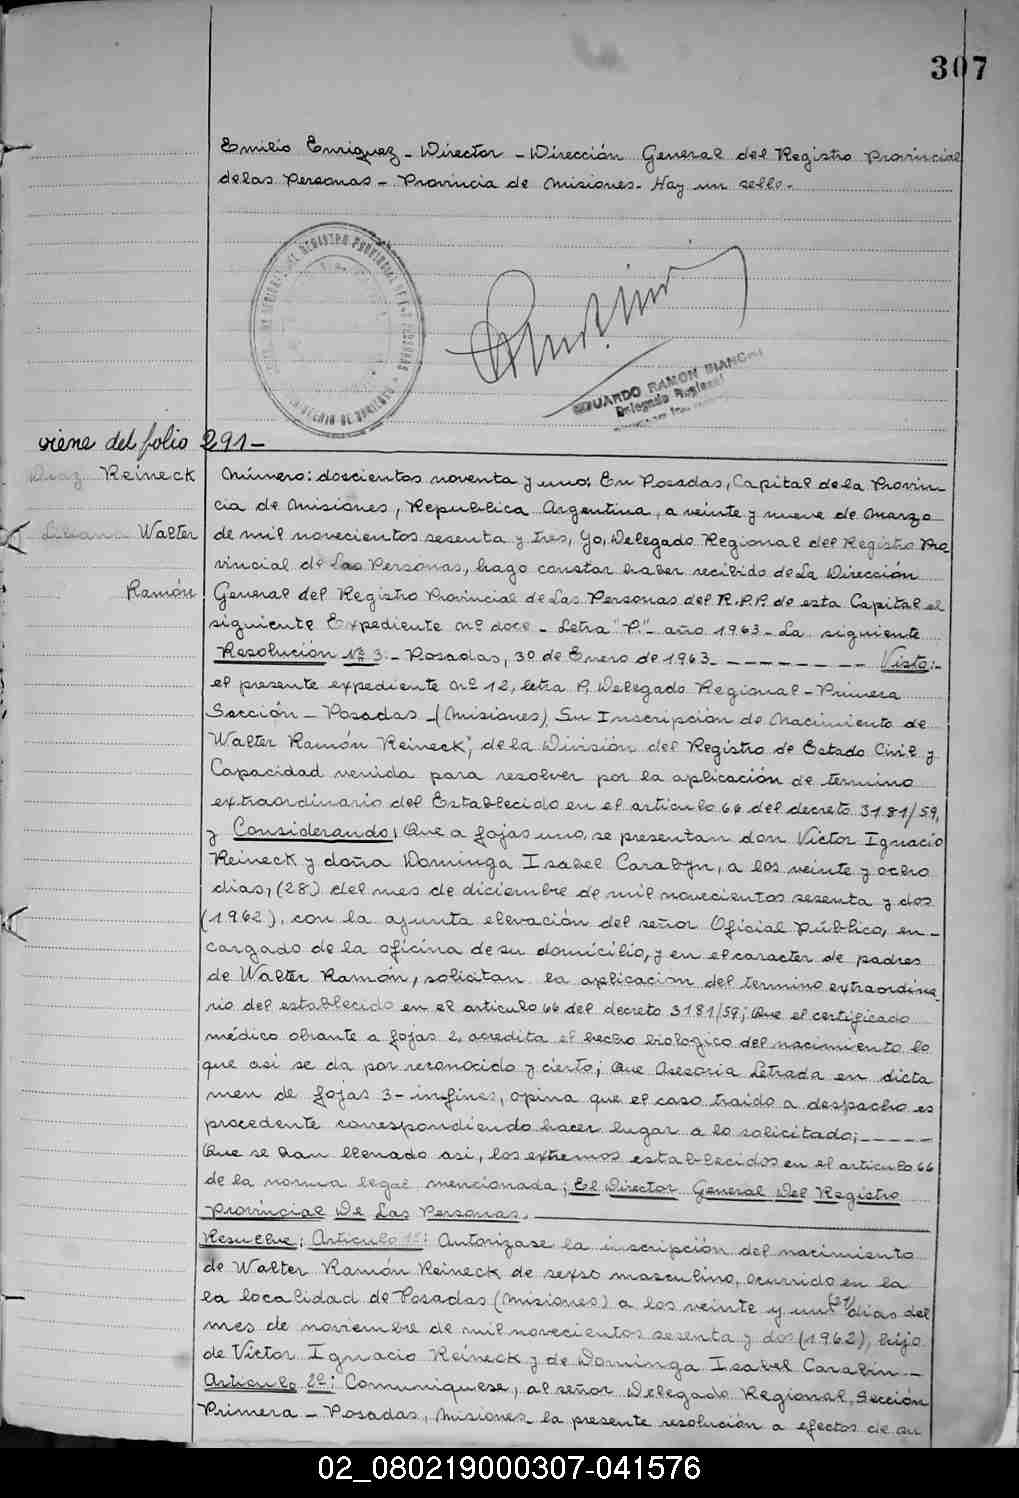 307
Emilio Enriquez - Director - Dirección General del Registro Provincial
delas Personas - Provincia de Misiones. Hay un sello.
REGISTRO PROVINCIAL DE LAS PERSONAS
EDUARDO RAMON BIANCHI
Delegado Regional
viene del folio 291-
Diaz Reineck
Liliana Walter
Ramón
Número: doscientos noventa y uno: En Posadas, Capital dela Provin
cia de Misiones, Republica Argentina, a veinte y nueve de Marzo
de mil novecientos sesenta y tres, yo, Delegado Regional del Registro Pro
vincial de Las Personas, hago constar haber recibido de La Dirección
General del Registro Provincial de Las Personas del R.P.P. de esta Capital el
siguiente Expediente Nº doce - Letra "P." - año 1963 - La siguiente
Resolución Nº 3:- Posadas, 30 de Enero de 1963 - - - - - - - - Visto:-
el presente expediente Nº 12, letra P. Delegado Regional - Primera
Sección - Posadas - (Misiones) Su Inscripción de Nacimiento de
Walter Ramón Reineck; de la División del Registro de Estado Civil y
Capacidad venida para resolver por la aplicación de termino
extraordinario del Establecido en el articulo 66 del decreto 3181/59,
y Considerando; Que a fojas uno, se presentan don Victor Ignacio
Reineck y doña Dominga Isabel Carabyn, a los veinte y ocho
dias, (28) del mes de diciembre de mil novecientos sesenta y dos
(1962), con la ajunta elevación del señor Oficial Público, en-
cargado de la oficina de su domicilio, y en el caracter de padres
de Walter Ramón, solicitan la aplicacion del termino extraordina
rio del establecido en el articulo 66 del decreto 3181/59; Que el certificado
médico obrante a fojas 2, acredita el hecho biologico del nacimiento lo
que asi se da por reconocido y cierto; Que Asesoria Letrada en dicta
men de fojas 3- infines, opina que el caso traido a despacho es
procedente correspondiendo hacer lugar a lo solicitado; - - - - -
Que se han llenado asi, los extremos establecidos en el articulo 66
de la norma legal mencionada; El Director General Del Registro
Provincial De Las Personas.
Resuelve: Articulo 1º: Autorizase la inscripción del nacimiento
de Walter Ramón Reineck de sexo masculino, ocurrido en la
la localidad de Posadas (Misiones) a los veinte y un (21) dias del
mes de noviembre de mil novecientos sesenta y dos (1962), hijo
de Victor Ignacio Reineck y de Dominga Isabel Carabin -
Articulo 2º: Comuniquese, al señor Delegado Regional, Sección
Primera - Posadas, Misiones la presente resolución a efectos de su
02_080219000307-041576